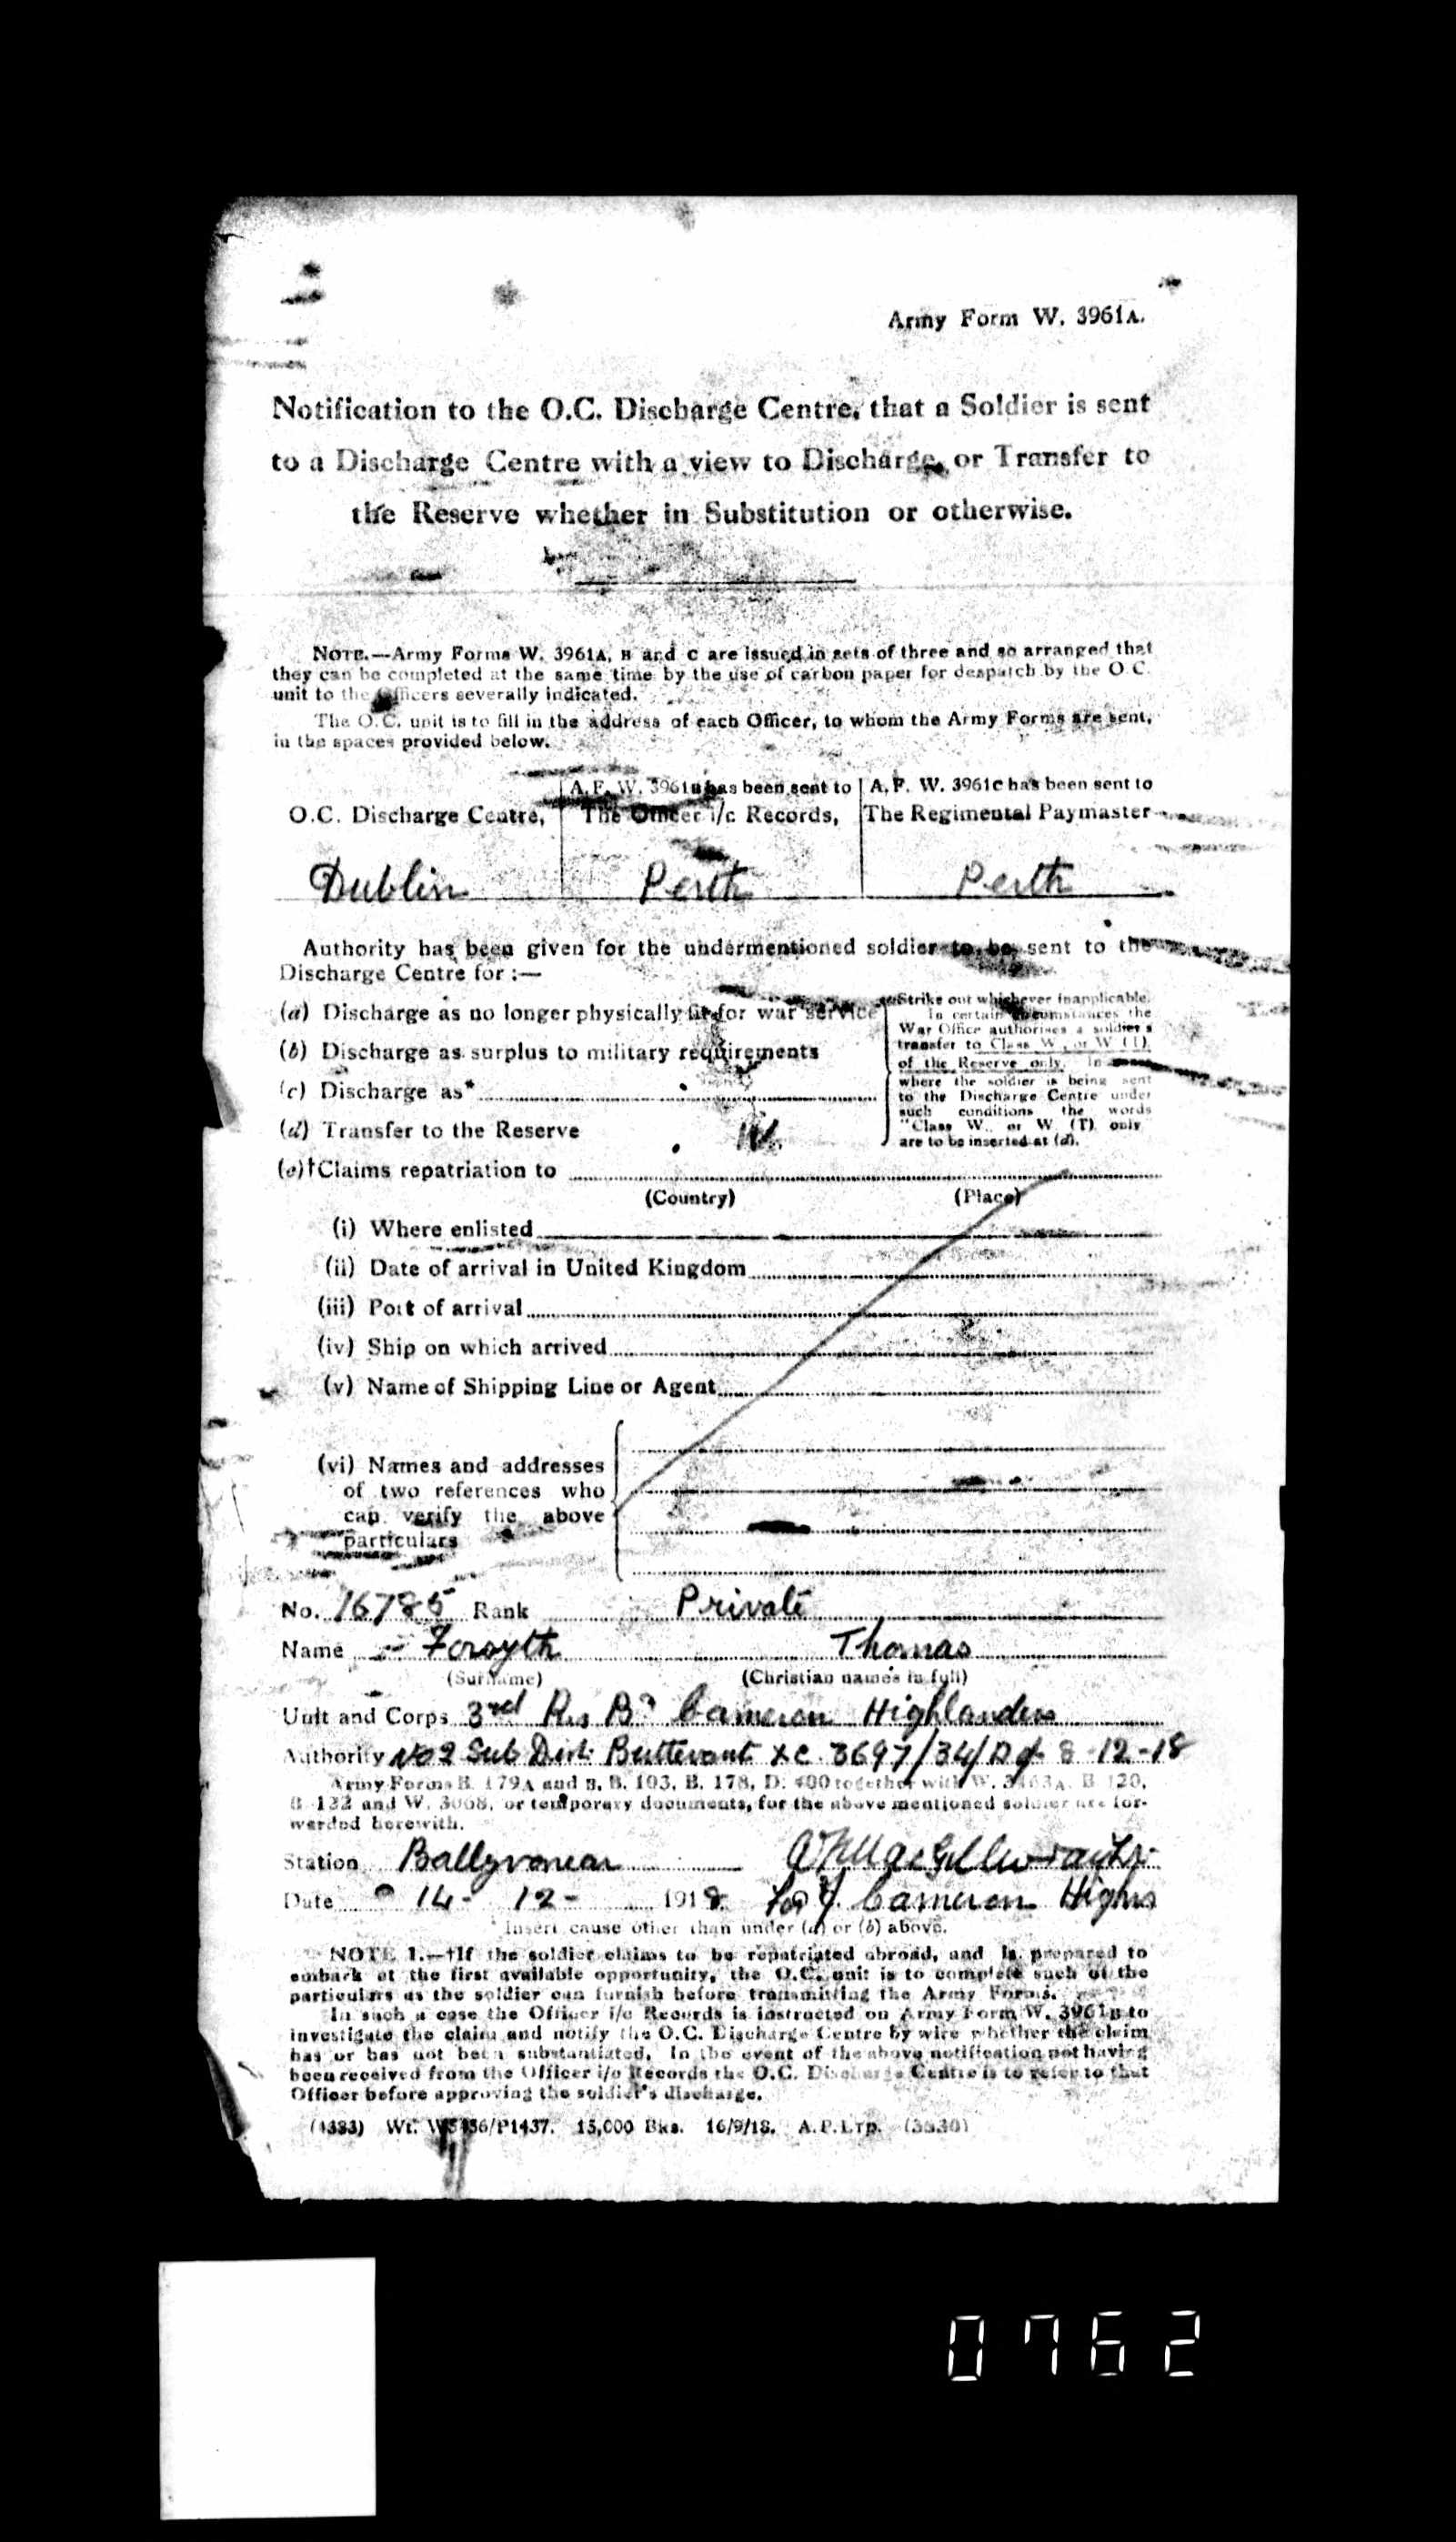 Army Form W. 3961A.
Notification to the O.C. Discharge Centre, that a Soldier is sent
to a Discharge Centre with a view to Discharge, or Transfer to
the Reserve whether in Substitution or otherwise.
NOTE.—Army Forms W. 3961A, B and C are issued in sets of three and so arranged that
they can be completed at the same time by the use of carbon paper for despatch by the O.C.
unit to the Officers severally indicated.
The O.C. unit is to fill in the address of each Officer, to whom the Army Forms are sent,
in the spaces provided below.
O.C. Discharge Centre,
Dublin
A.F. W. 3961B has been sent to
The Officer i/c Records,
Perth
A.F. W. 3961C has been sent to
The Regimental Paymaster
Perth
Authority has been given for the undermentioned soldier to be sent to the
Discharge Centre for :—
(a) Discharge as no longer physically fit for war service
(b) Discharge as surplus to military requirements
(c) Discharge as*
(d) Transfer to the Reserve
Strike out whichever inapplicable.
In certain circumstances the
War Office authorises a soldier's
transfer to Class W., or W (T),
of the Reserve only. In
where the soldier is being sent
to the Discharge Centre under
such conditions the words
"Class W., or W (T) only
are to be inserted at (d).
(e)†Claims repatriation to
(Country) (Place)
(i) Where enlisted
(ii) Date of arrival in United Kingdom
(iii) Port of arrival
(iv) Ship on which arrived
(v) Name of Shipping Line or Agent
(vi) Names and addresses
of two references who
can verify the above
particulars
No. 16785 Rank Private
Name Forsyth Thomas
(Surname) (Christian names in full)
Unit and Corps 3rd Res Bn Cameron Highlanders
Authority No 2 Sub Dist. Buttevant XC. 3697/34/D d/- 8-12-18
Army Forms B. 179A and B, B. 103, B. 178, D. 400 together with W. 3463A, B 120,
B 132 and W. 3068, or temporary documents, for the above mentioned soldier are for-
warded herewith.
Station Ballyvonear
Date 14- 12- 1918 Cameron Highrs
Insert cause other than under (a) or (b) above.
NOTE 1.—†If the soldier claims to be repatriated abroad, and is prepared to
embark at the first available opportunity, the O.C. unit is to complete such of the
particulars as the soldier can furnish before transmitting the Army Forms.
In such a case the Officer i/c Records is instructed on Army Form W. 3961B to
investigate the claim and notify the O.C. Discharge Centre by wire whether the claim
has or has not been substantiated. In the event of the above notification not having
been received from the Officer i/c Records the O.C. Discharge Centre is to refer to that
Officer before approving the soldier's discharge.
(4383) Wt. W5456/P1437. 15,000 Bks. 16/9/18. A.P.LTD. (3530)
0762